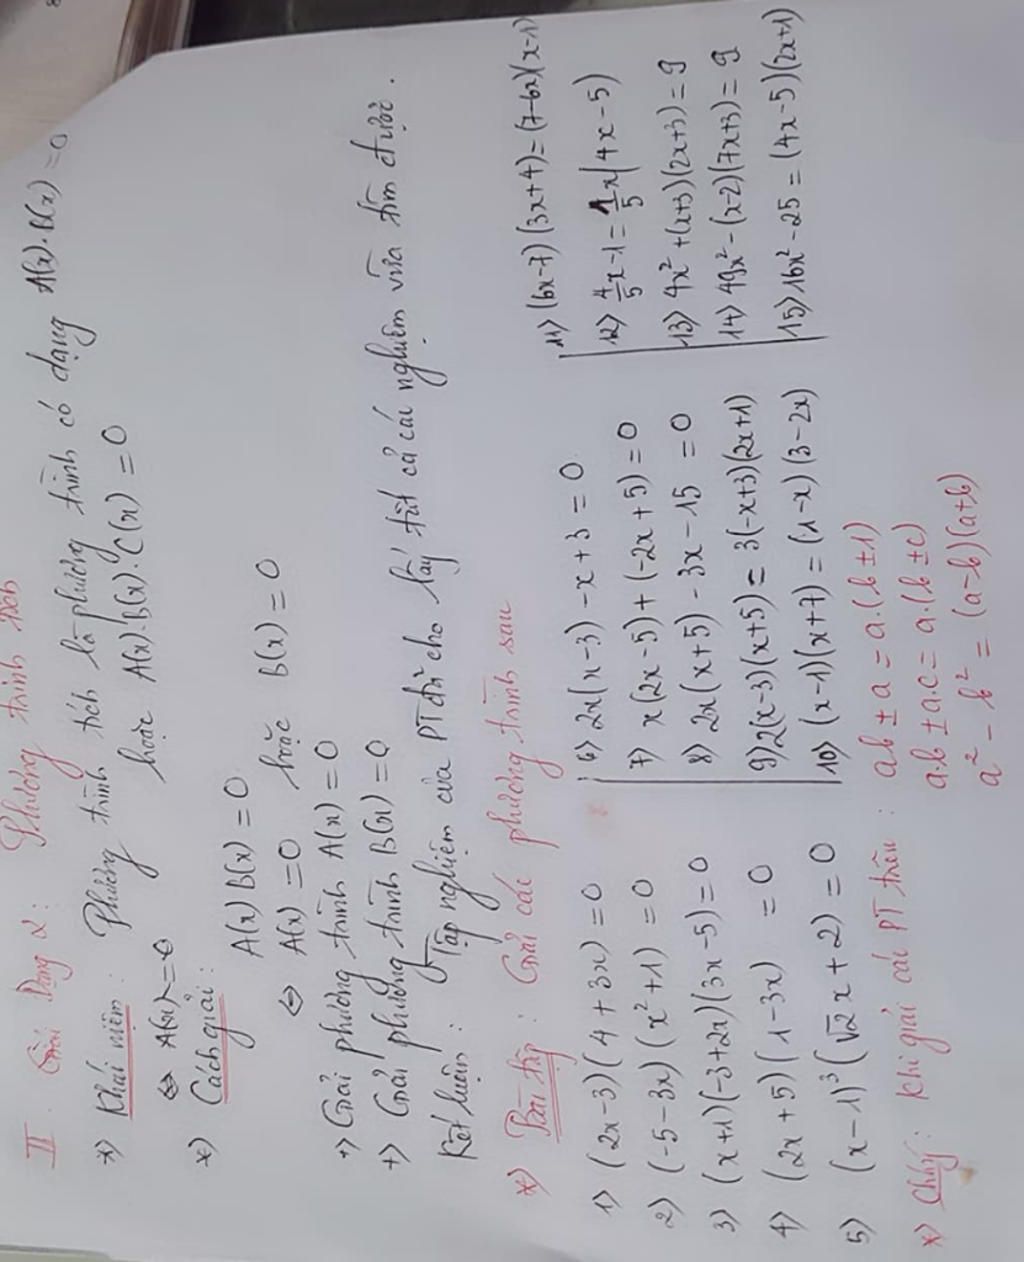 II. Dạng 2: Phương trình tích
*) Khái niệm: Phương trình tích là phương trình có dạng A(x).B(x) = 0
hoặc A(x).B(x).C(x) = 0
⇔ A(x) = 0
*) Cách giải:
A(x)B(x) = 0
⇔ A(x) = 0 hoặc B(x) = 0
+) Giải phương trình A(x) = 0
+) Giải phương trình B(x) = 0
Kết luận: Tập nghiệm của PT đã cho lấy tất cả các nghiệm vừa tìm được.
*) Bài tập: Giải các phương trình sau
1) (2x-3)(4+3x) = 0
2) (-5-3x)(x²+1) = 0
3) (x+1)(-3+2x)(3x-5) = 0
4) (2x+5)(1-3x) = 0
5) (x-1)³(√2x+2) = 0
6) 2x(x-3)-x+3 = 0
7) x(2x-5)+(-2x+5) = 0
8) 2x(x+5)-3x-15 = 0
9) 2(x-3)(x+5) = 3(-x+3)(2x+1)
10) (x-1)(x+7) = (1-x)(3-2x)
11) (6x-7)(3x+4) = (7-6x)(x-1)
12) 4/5x-1 = 1/5x(4x-5)
13) 4x²+(x+3)(2x+3) = 9
14) 49x²-(x-2)(7x+3) = 9
15) 16x²-25 = (4x-5)(2x+1)
*) Chú ý: Khi giải các PT trên: ab ± a = a.(b ± 1)
a.b ± a.c = a.(b ± c)
a² - b² = (a-b)(a+b)